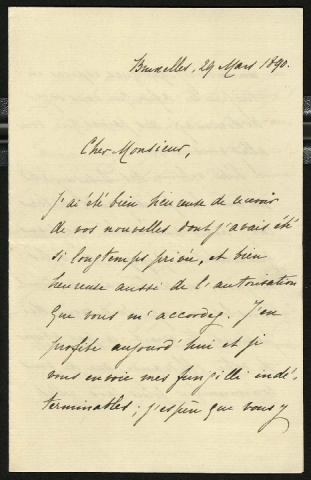 Bruxelles, 29 Mars 1890.
Cher Monsieur,
J'ai été bien heureuse de recevoir
de vos nouvelles dont j'avais été
si longtemps privée, et bien
heureuse aussi de l'autorisation
que vous m'accordez. J'en
profite aujourd'hui et je
vous envoie mes fungilli indé-
terminables; j'espère que vous y